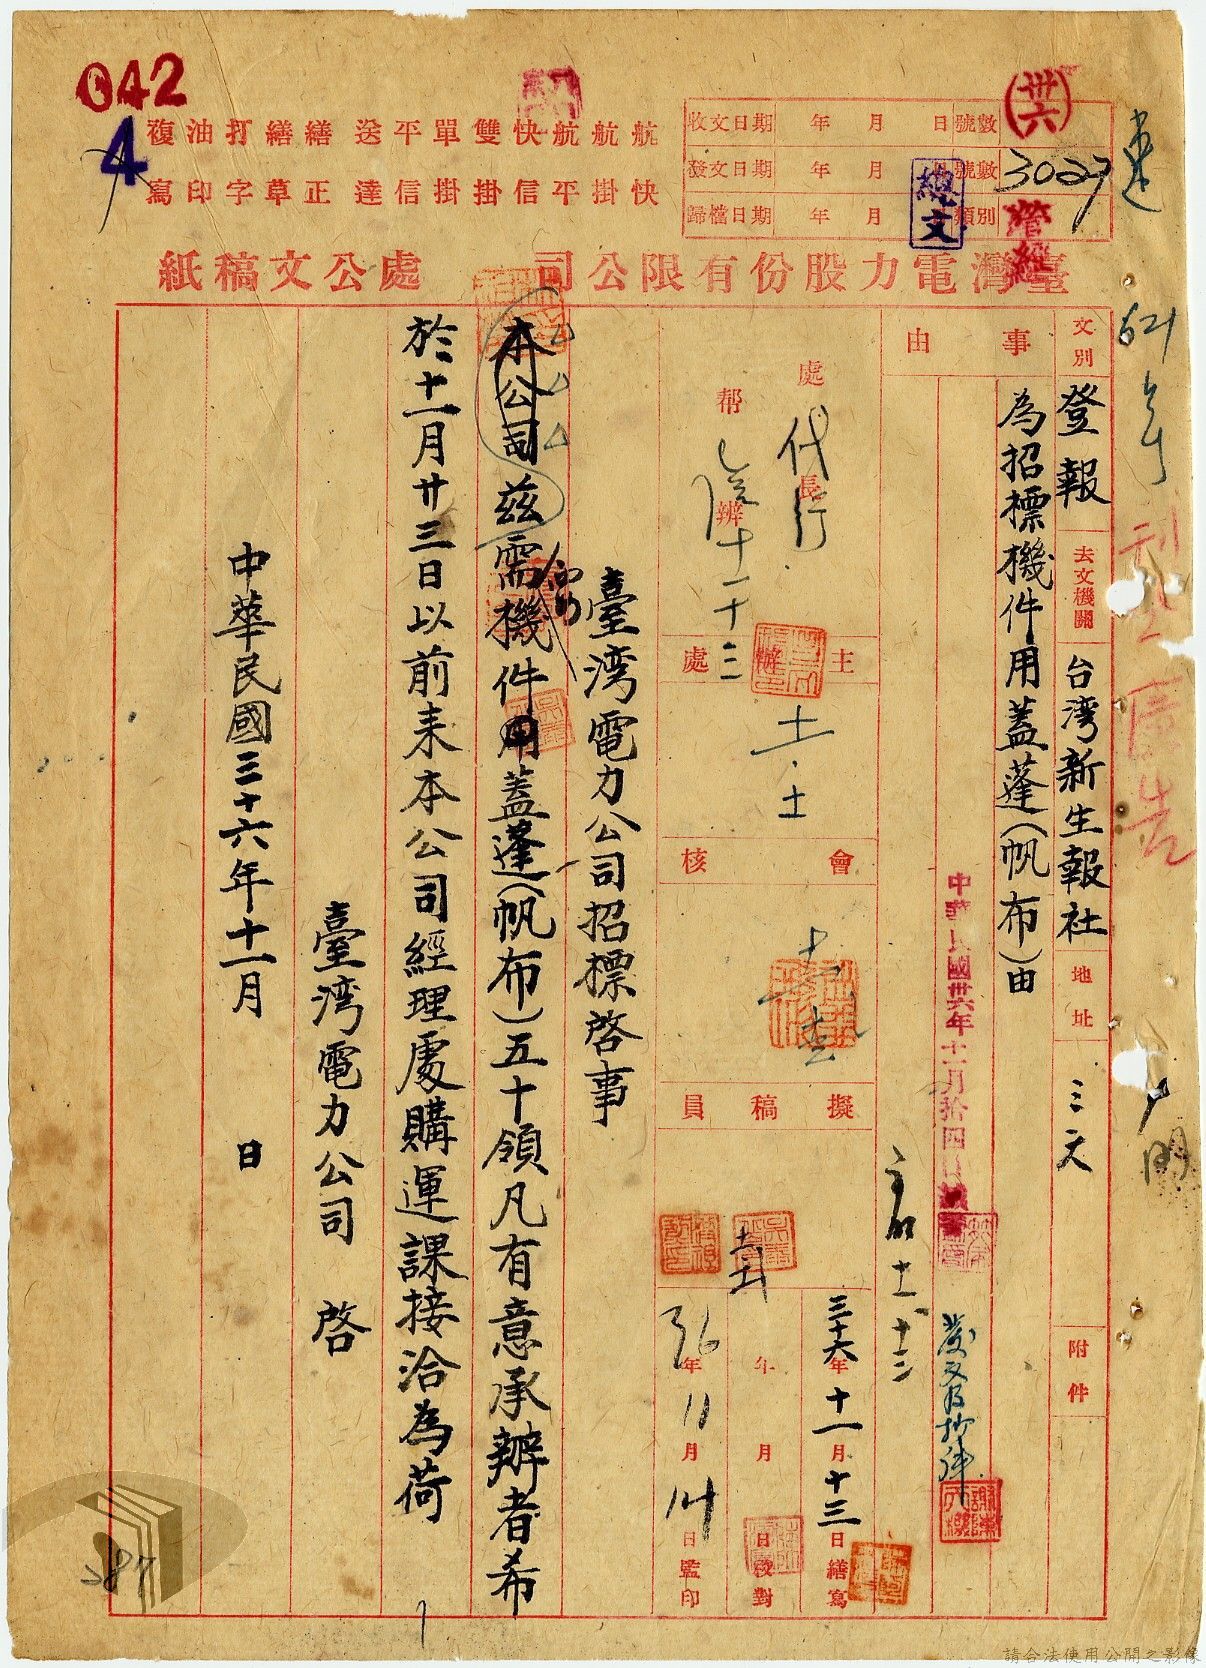 042
4
航 航 航 快 雙 單 平 送 繕 繕 打 油 複
快 掛 平 信 掛 掛 信 達 正 草 字 印 寫
收文日期 年 月 日 號數
發文日期 年 月 日 號數 3027
歸檔日期 年 月 類別
卅六
總文
速
臺灣電力股份有限公司 處公文稿紙
文別 登報 去文機關 台湾新生報社 地址 三天 附件
事由
為招標機件用蓋蓬(帆布)由
中華民國卅六年十一月拾四日
處長 代行
幫辦 十一 十三
主辦處
會核
擬稿員
三十六年十一月十三日繕寫
年 月 日校對
36年11月14日監印
臺湾電力公司招標啓事
本公司茲需機件用蓋蓬(帆布)五十領凡有意承辦者希
於十一月廿三日以前来本公司經理處購運課接洽為荷
臺湾電力公司 啓
中華民國三十六年十一月 日
387
請合法使用公開之影像